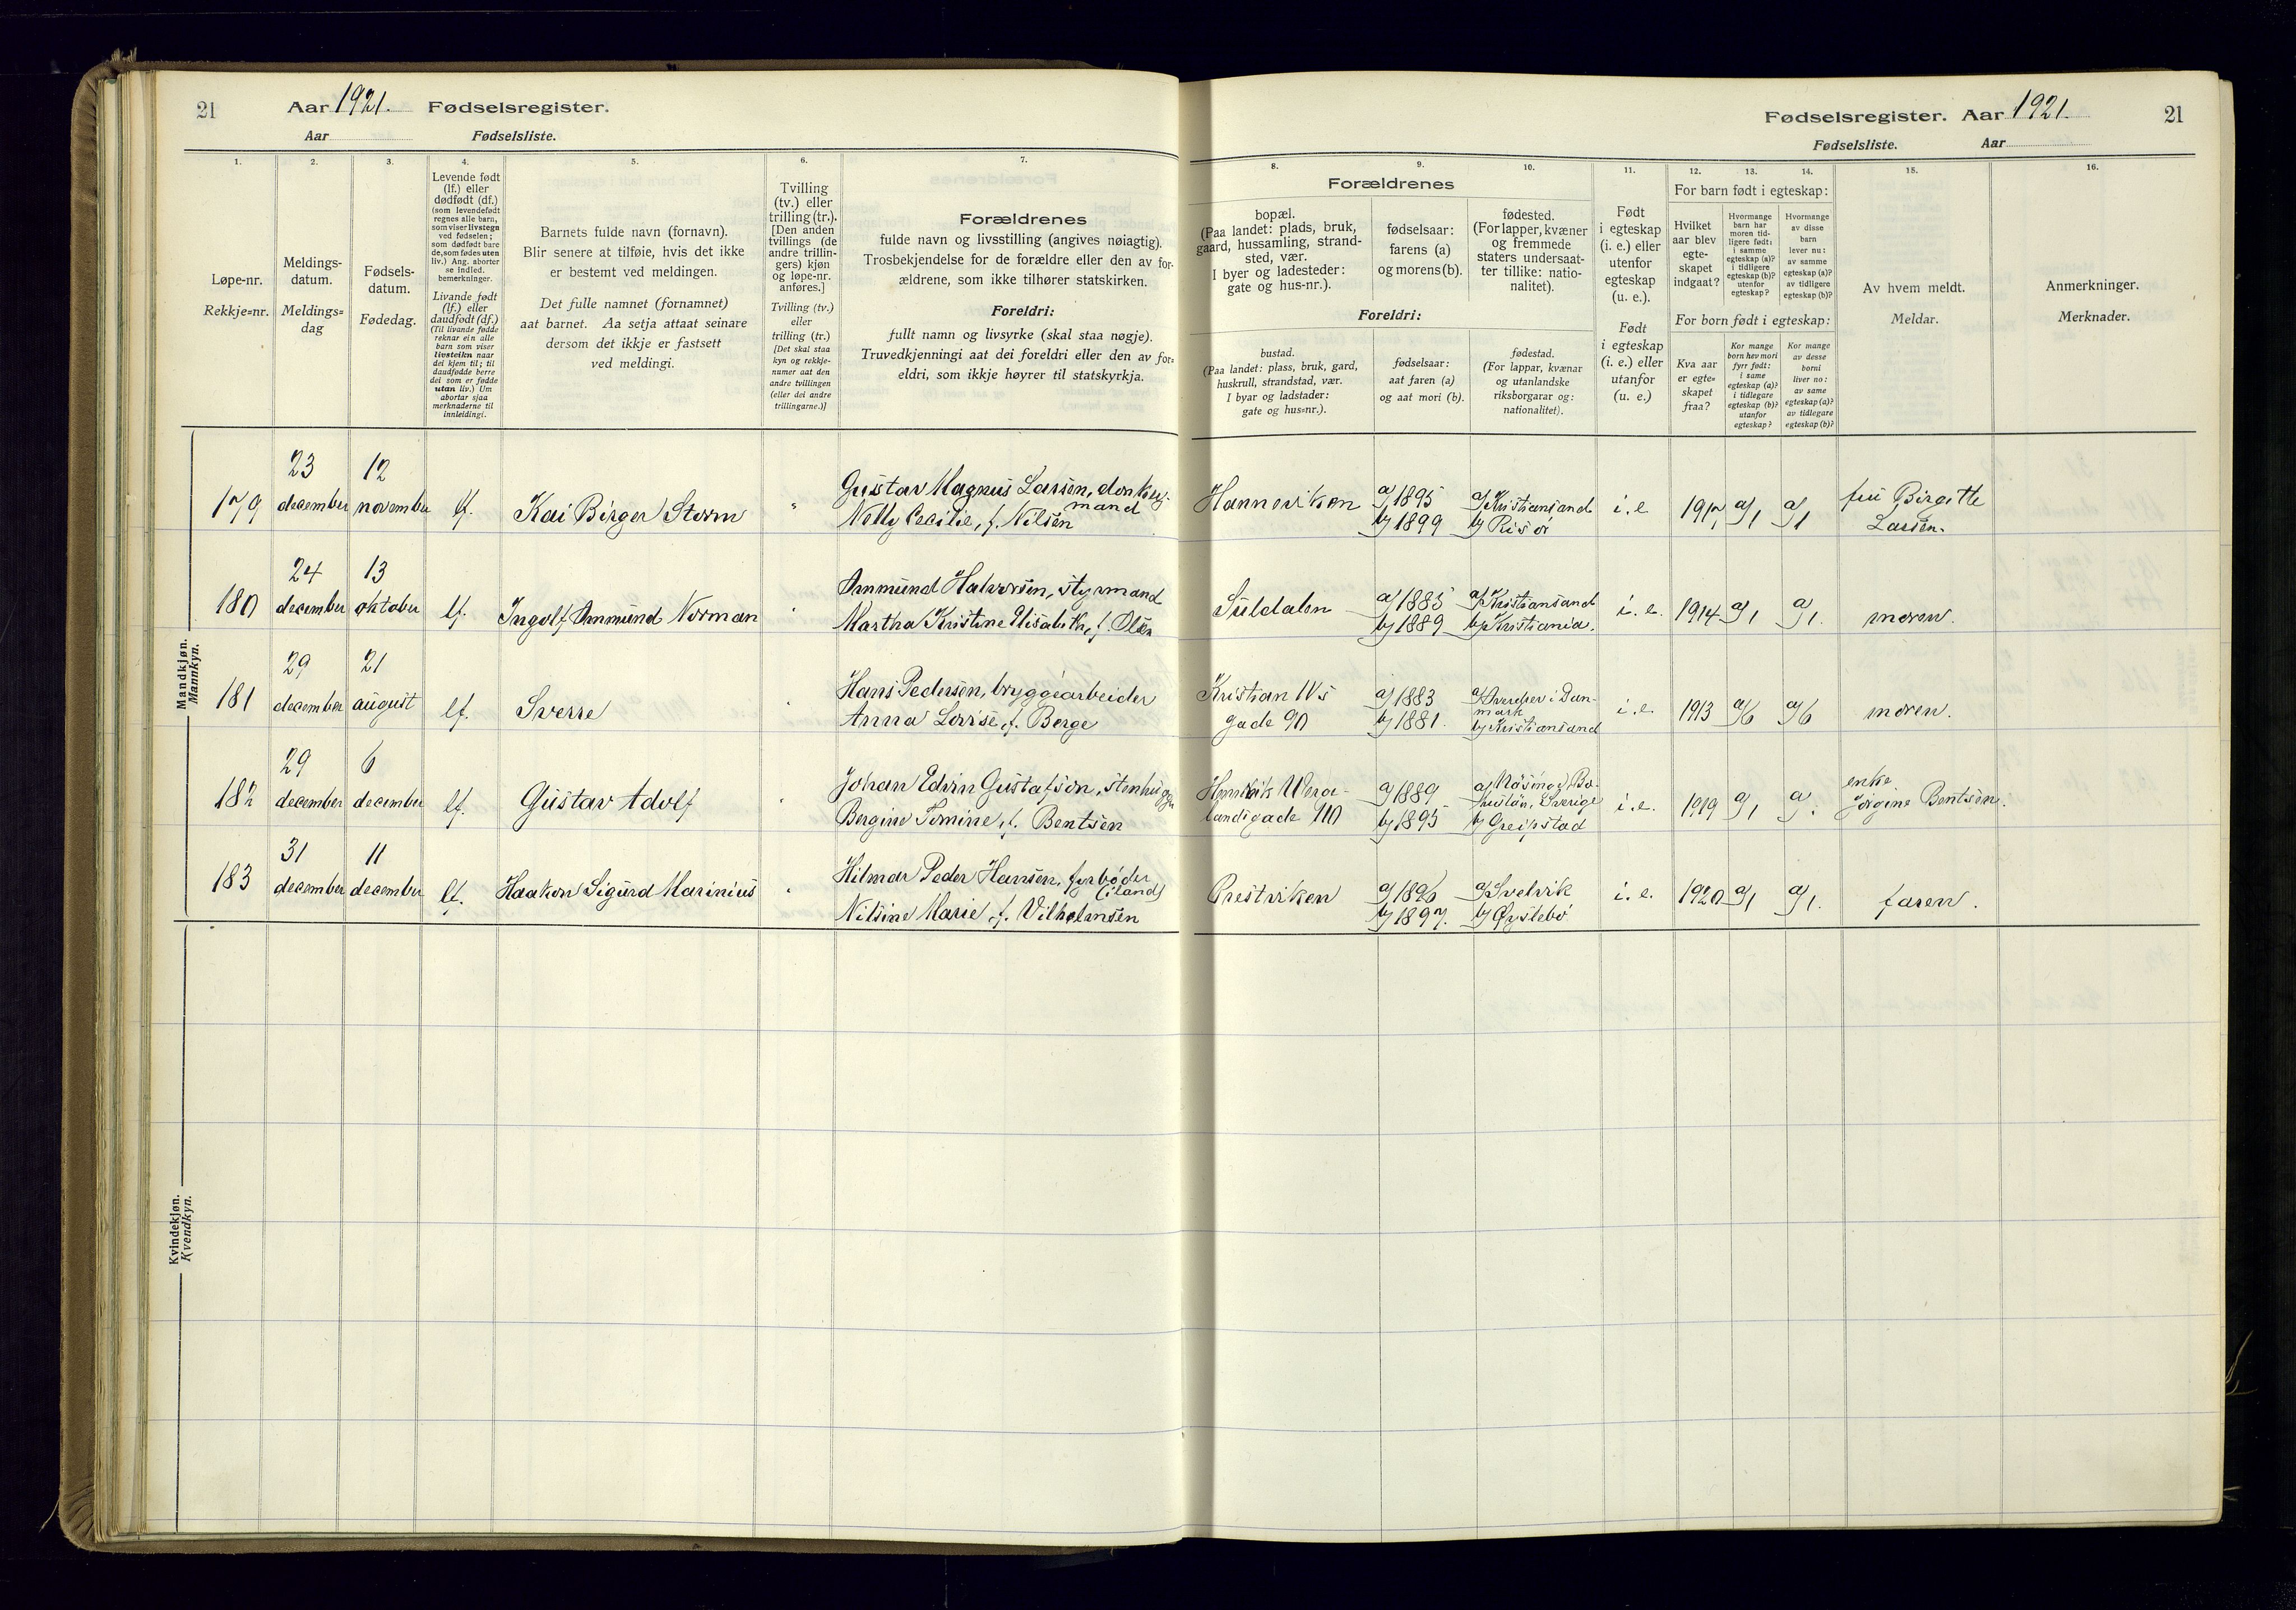 21 Aar 1921. Fødselsregister.
Aar Fødselsliste.
1. 2. 3. 4. 5. 6. 7.
Løpe-nr.
Rekkje-nr.
Meldings-
datum.
Meldings-
dag
Fødsels-
datum.
Fødedag.
Levende født
(lf.) eller
dødfødt (df.)
(som levendefødt
regnes alle barn,
som viser livstegn
ved fødselen;
som dødfødt bare
de, som fødes uten
liv.) Ang. aborter
se indled.
bemerkninger.
Livande født
(lf.) eller
daudfødt (df.)
(Til livande fødde
reknar ein alle
barn som viser
livsteikn naar
dei kjem til; til
daudfødde berre
dei som er fødde
utan liv.) Um
abortar sjaa
merknaderne til
innleidingi.
Barnets fulde navn (fornavn).
Blir senere at tilføie, hvis det ikke
er bestemt ved meldingen.
Det fulle namnet (fornamnet)
aat barnet. Aa setja attaat seinare
dersom det ikkje er fastsett
ved meldingi.
Tvilling
(tv.) eller
trilling (tr.).
[Den anden
tvillings (de
andre trillin-
gers) kjøn
og løpe-nr.
anføres.]
Tvilling (tv.)
eller
trilling (tr.)
[Det skal staa
kyn og rekkje-
numer aat den
andre tvillingen
(eller dei andre
trillingarne.)]
Forældrenes
fulde navn og livsstilling (angives nøiagtig).
Trosbekjendelse for de forældre eller den av for-
ældrene, som ikke tilhører statskirken.
Foreldri:
fullt namn og livsyrke (skal staa nøgje).
Truvedkjenningi aat dei foreldri eller den av for-
eldri, som ikkje høyrer til statskyrkja.
Mandkjøn.
Mannkyn.
179
23
december
12
november
lf.
Kai Birger Storm
Gustav Magnus Larsen, donkey-
mand
Nelly Cecilie, f. Nilsen
180
24
december
13
oktober
lf.
Ingolf Ammund Norman
Ammund Halvorsen, styrmand
Martha Kristine Elisabeth, f. Olsen
181
29
december
21
august
lf.
Sverre
Hans Pedersen, bryggearbeider
Anna Lovise, f. Berge
182
29
december
6
december
lf.
Gustav Adolf
Johan Edvin Gustafson, stenhugger
Bergine Tomine, f. Bentsen
183
31
december
11
december
lf.
Haakon Sigurd Marinius
Hilmar Peder Hansen, fyrbøder
(iland)
Nilsine Marie, f. Vilhelmsen
Kvindekjøn.
Kvendkyn.
Fødselsregister. Aar 1921. 21
Fødselsliste. Aar
8. 9. 10. 11. 12. 13. 14. 15. 16.
Forældrenes
bopæl.
(Paa landet: plads, bruk,
gaard, hussamling, strand-
sted, vær.
I byer og ladesteder:
gate og hus-nr.).
fødselsaar:
farens (a)
og morens (b).
fødested.
(For lapper, kvæner
og fremmede
staters undersaat-
ter tillike: natio-
nalitet).
Foreldri:
bustad.
(Paa landet: plass, bruk, gard,
huskrull, strandstad, vær.
I byar og ladstader:
gate og hus-nr.).
fødselsaar:
aat faren (a)
og aat mori (b).
fødestad.
(For lappar, kvænar
og utanlandske
riksborgarar og:
nationalitet).
Født
i egteskap
(i. e.) eller
utenfor
egteskap
(u. e.).
Født
i egteskap
(i. e.) eller
utanfor
(u. e.)
For barn født i egteskap:
Hvilket
aar blev
egte-
skapet
indgaat?
Hvormange
barn har
moren tid-
ligere født:
i samme
egteskap (a)?
i tidligere
egteskap (b)?
utenfor
egteskap?
Hvormange
av disse
barn
lever nu:
av samme
egteskap (a)?
av tidligere
egteskap (b)?
For born født i egteskap:
Kva aar
er egte-
skapet
fraa?
Kor mange
born hev mori
fyrr født:
i same
egteskap (a)?
i tidlegare
egteskap (b)?
utanfor
egteskap?
Kor mange
av desse
borni
liver no:
av same
egteskap (a)?
av tidlegare
egteskap (b)?
Av hvem meldt.
Meldar.
Anmerkninger.
Merknader.
Hanneviken
a) 1895
b) 1899
a) Kristiansand
b) Risør
i. e.
1917
a) 1
a) 1
fru Birgitte
Larsen.
Suldalen
a) 1885
b) 1889
a) Kristiansand
b) Kristiania.
i. e.
1914
a) 1
a) 1.
moren.
Kristian IVs
gade 90
a) 1883
b) 1881.
a) i Dan-
mark
b) Kristiansand
i. e.
1913
a) 6
a) 6
moren.
Henrik Werge-
landsgade 110
a) 1889
b) 1895
Sverige
b) Greipstad
i. e.
1919
a) 1
a
enke
Jørgine Bentsen.
Prestviken
a) 1896
b) 1897.
a) Svelvik
b) Øyslebø
i. e.
1920
a) 1
a) 1.
faren.